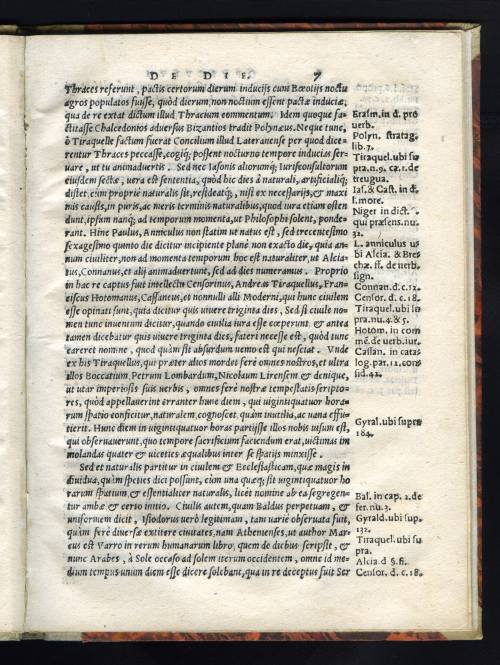 DE DIE. 7
Thraces referunt, pactis certorum dierum inducijs cum Bœotijs noctu
agros populatos fuisse, quòd dierum, non noctium essent pactæ induciæ,
qua de re extat dictum illud Thracium commentum. Idem quoque fa-
ctitasse Chalcedonios aduersus Bizantios tradit Polynæus. Neque tunc,
ò Tiraquelle factum fuerat Concilium illud Lateranense per quod dice-
rentur Thraces peccasse, cogiq; possent nocturno tempore inducias ser-
uare, ut tu animaduertis. Sed nec Iasonis aliorumq; iurisconsultorum
eiusdem sectæ, uera est sententia, quòd hic dies à naturali, artificialiq;
distet, cum proprie naturalis sit, resideatq;, nisi ex necessarijs, & maxi
mis causis, in puris, ac meris terminis naturalibus, quod iura etiam osten
dunt, ipsum nanq; ad temporum momenta, ut Philosophi solent, ponde-
rant. Hinc Paulus, Anniculus non statim ut natus est, sed trecentesimo
sexagesimo quinto die dicitur incipiente planè non exacto die, quia an-
num ciuiliter, non ad momenta temporum hoc est naturaliter, ut Alcia-
tus, Connanus, et alij animaduertunt, sed ad dies numeramus. Proprio
in hac re captus fuit intellectu Censorinus, Andreas Tiraquellus, Fran-
ciscus Hotomanus, Cassaneus, et nonnulli alij Moderni, qui hunc ciuilem
esse opinati sunt, quia dicitur quis uiuere triginta dies, Sed si ciuile no-
men tunc inuentum dicitur, quando ciuilia iura esse cœperunt & antea
tamen dicebatur quis uiuere triginta dies, fateri necesse est, quòd tunc
careret nomine, quod quàm sit absurdum nemo est qui nesciat. Vnde
ex his Tiraquellus, qui præter alios mordet ferè omnes nostros, et ultra
alios Boccatium, Petrum Lombardum, Nicolaum Lirensem & denique,
ut utar imperiosis suis uerbis, omnes ferè nostræ tempestatis scripto-
res, quòd appellauerint erranter hunc diem, qui uigintiquatuor hora-
rum spatio conficitur, naturalem, cognoscet quàm inutilia, ac uana effu-
tierit. Hunc diem in uigintiquatuor horas partijsse illos nobis uisum est,
qui obseruauerunt, quo tempore sacrificium faciendum erat, uictimas im
molandas quater & uiceties æqualibus inter se spatijs minxisse.
Sed et naturalis partitur in ciuilem & Ecclesiasticam, quæ magis in
diuidua, quàm species dici possunt, cùm una quæq; sit uigintiquatuor ho
rarum spatium, & essentialiter naturalis, licèt nomine ab ea segregen-
tur ambæ & certo initio. Ciuilis autem, quam Baldus perpetuam, &
uniformem dicit, Isiodorus uerò legitimam, tam uariè obseruata fuit,
quàm ferè diuersæ extitere ciuitates, nam Athenenses, ut author Mar-
cus est Varro in rerum humanarum libro, quem de diebus scripsit, &
nunc Arabes, à Sole occaso ad solem iterum occidentem, omne id me-
dium tempus unum diem esse dicere solebant, qua in re deceptus fuit Ser
Erasm. in d. pro
uerb.
Polyn. stratag.
lib. 7.
Tiraquel. ubi su
pra. n. 9. cæ. 1. de
treugua.
Ias. & Cast. in d.
l. more.
Niger in dict. .
qui præsens. nu.
32.
L. anniculus u-
bi Alcia. & Bres
chæ. ff. de uerb.
sign.
Connan. d. c. 12.
Censor. d. c. 18.
Tiraquel. ubi su
pra. nu. 4. & 5.
Hotom. in com
mẽ. de uerb. iur.
Cassan. in cata-
log. par. 12. con-
sid. 42.
Gyral. ubi supra
184.
Bal. in cap. 2. de
fer. nu. 3.
Gyrald. ubi sup.
132.
Tiraquel. ubi su
pra.
Alcia. d §. fi.
Censor. d. c. 18.